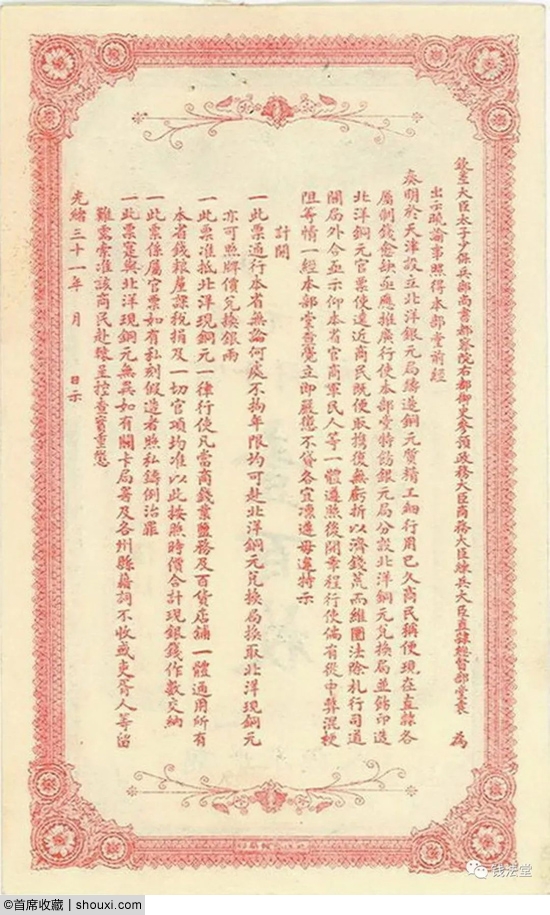 欽差大臣太子少保兵部尚書都察院右都御史參預政務大臣商務大臣練兵大臣直隸總督部堂袁 為
出示曉諭事照得本部堂前經
奏明於天津設立北洋銀元局鑄造銅元質精工細行用已久商民稱便現在直隸各
屬制錢愈缺亟應推廣行使本部堂特飭銀元局分設北洋銅元兌換局並飭印造
北洋銅元官票使遠近商民既便取攜復無虧折以濟錢荒而維圜法除札行司道
關局外合亟示仰本省官商軍民人等一體遵照後開章程行使倘有從中弊混梗
阻等情一經本部堂查覺立即嚴懲不貸各宜凜遵毋違特示
計開
一此票通行本省無論何處不拘年限均可赴北洋銅元兌換局換取北洋現銅元
亦可照牌價兌換銀兩
一此票准抵北洋現銅元一律行使凡當商錢業鹽務及百貨店舖一體通用所有
本省錢糧厘課稅捐及一切官項均准以此按照時價合計現銀錢作數交納
一此票係屬官票如有私刻假造者照私鑄例治罪
一此票寔與北洋現銅元無異如有關卡局署及各州縣藉詞不收或吏胥人等留
難需索准該商民赴轅呈控查實重懲
光緒三十一年 月 日示
钱法堂
©首席收藏 | shouxi.com—